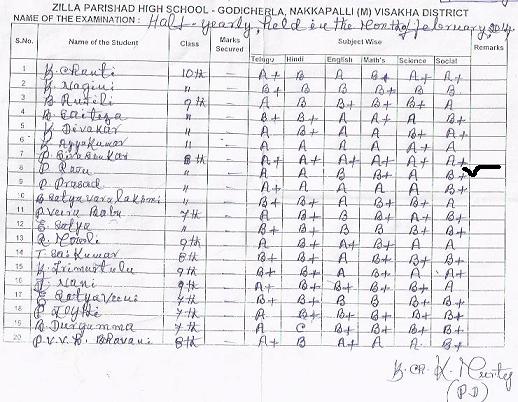 ZILLA PARISHAD HIGH SCHOOL - GODICHERLA, NAKKAPALLI (M) VISAKHA DISTRICT
NAME OF THE EXAMINATION : Half-yearly, held in the Month of february, 2014.
S.No. Name of the Student Class Marks Secured Subject Wise Remarks
Telugu Hindi English Math's Science Social
1 K. Chanti 10th — A+ B A B+ A+ A+
2 K. Nagini " — B+ B B B+ B B
3 9th — A B B B+ B+ A
4 " — B+ B+ A A+ A B+
5 K. Divakar " — A B+ A A B+ A
6 K. Ayyakumar " — A A A B+ A
7 P. Sivasankar 8th — A+ A+ A A+ A A+
8 P. Raju " — A A B B+ A B+
9 P. Prasad " — A+ A A A A B+
10 B. Satyavaralakshmi " — B+ B+ A B+ B+ A
11 P. Veera Babu 7th — A B A A B+ B+
12 E. Satya " — B+ B+ A B+ B+ B+
13 9th — A B+ A+ B+ A A
14 T. Sai Kumar 8th — B+ B+ A A B+ B+
15 K. Trimurtulu 9th — B+ B+ A B+ A A+
16 J. Nani 9th — A+ B+ B+ B+ B+ A
17 E. Satyaveni 7th — B+ B+ B B B+ B+
18 P. 7th — A A B+ B+ B+ B+
19 B. Durgamma 7th — A C B+ B+ B+ B+
20 P.V.V.B. Bhavani 8th — A+ B A A B+
K. Ch. K. Murty
(P.D)